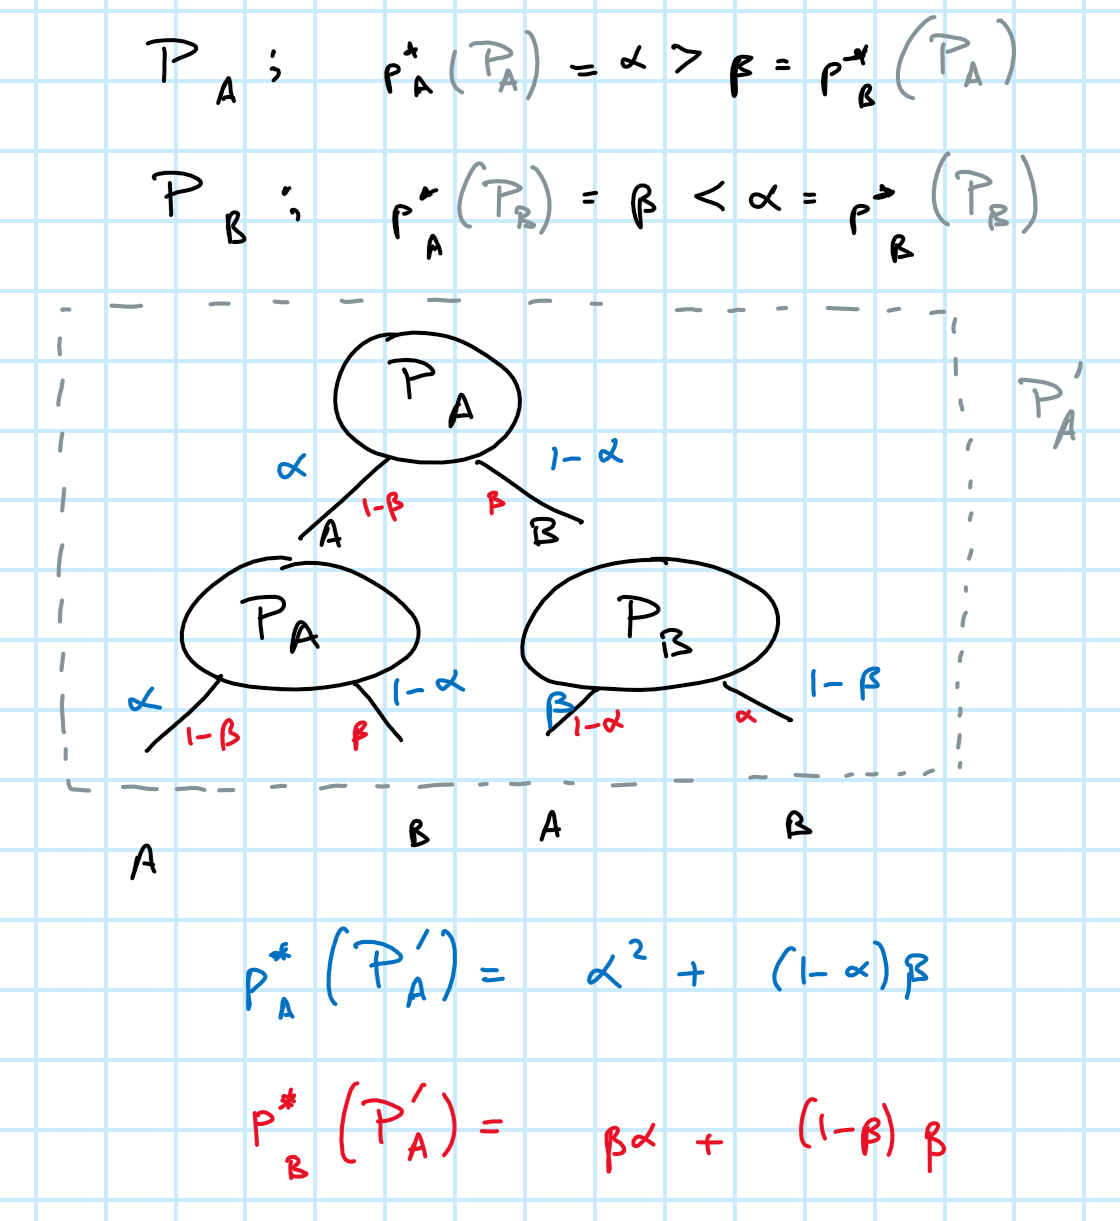 P_A ; p*_A (P_A) = α > β = p*_B (P_A)
P_B ; p*_A (P_B) = β < α = p*_B (P_B)
P_A
P'_A
α 1-α
1-β β
A B
P_A P_B
α 1-α β 1-β
1-β β 1-α α
A B A B
p*_A (P'_A) = α² + (1-α) β
p*_B (P'_A) = βα + (1-β) β